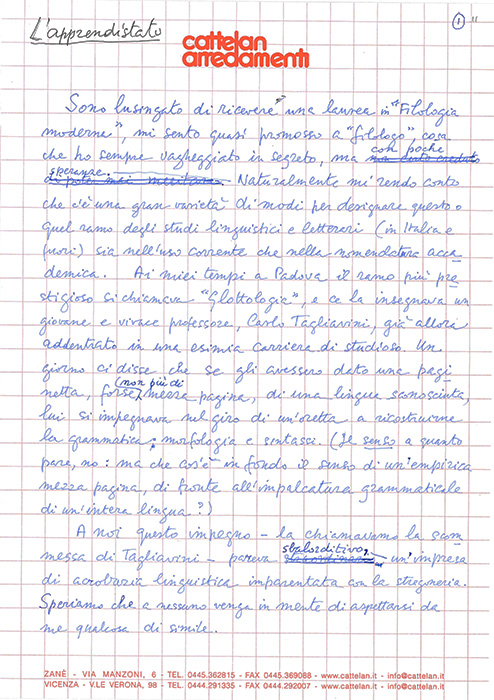 L'apprendistato
1
cattelan
arredamenti
Sono lusingato di ricevere una laurea in "Filologia
moderna", mi sento quasi promosso a "filologo", cosa
che ho sempre vagheggiato in segreto, ma con poche
speranze. Naturalmente mi rendo conto
che c'è una gran varietà di modi per designare questo o
quel ramo degli studi linguistici e letterari (in Italia e
fuori) sia nell'uso corrente che nella nomenclatura acca
demica. Ai miei tempi a Padova il ramo più pre
stigioso si chiamava "Glottologia", e ce la insegnava un
giovane e vivace professore, Carlo Tagliavini, già allora
addentrato in una esimia carriera di studioso. Un
giorno ci disse che se gli avessero dato una pagi
netta, forse (non più di) mezza pagina, di una lingua sconosciuta,
lui si impegnava nel giro di un'oretta a ricostruirne
la grammatica: morfologia e sintassi. (Il senso a quanto
pare, no: ma che cos'è in fondo il senso di un'empirica
mezza pagina, di fronte all'impalcatura grammaticale
di un'intera lingua?)
A noi questo impegno - la chiamavamo la scom
messa di Tagliavini - pareva sbalorditivo, un'impresa
di acrobazia linguistica imparentata con la stregoneria.
Speriamo che a nessuno venga in mente di aspettarsi da
me qualcosa di simile..
ZANÈ - VIA MANZONI, 6 - TEL. 0445.362815 - FAX 0445.369088 - www.cattelan.it - info@cattelan.it
VICENZA - V.LE VERONA, 98 - TEL. 0444.291335 - FAX 0444.292007 - www.cattelan.it - info@cattelan.it